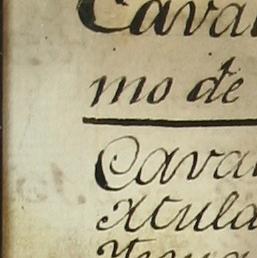 Caval
mo de
Caval
xtula